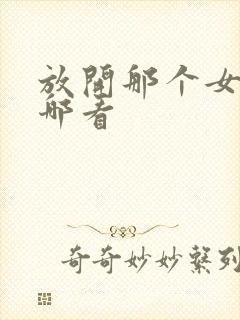 放開那个女
那看
奇奇妙妙系列